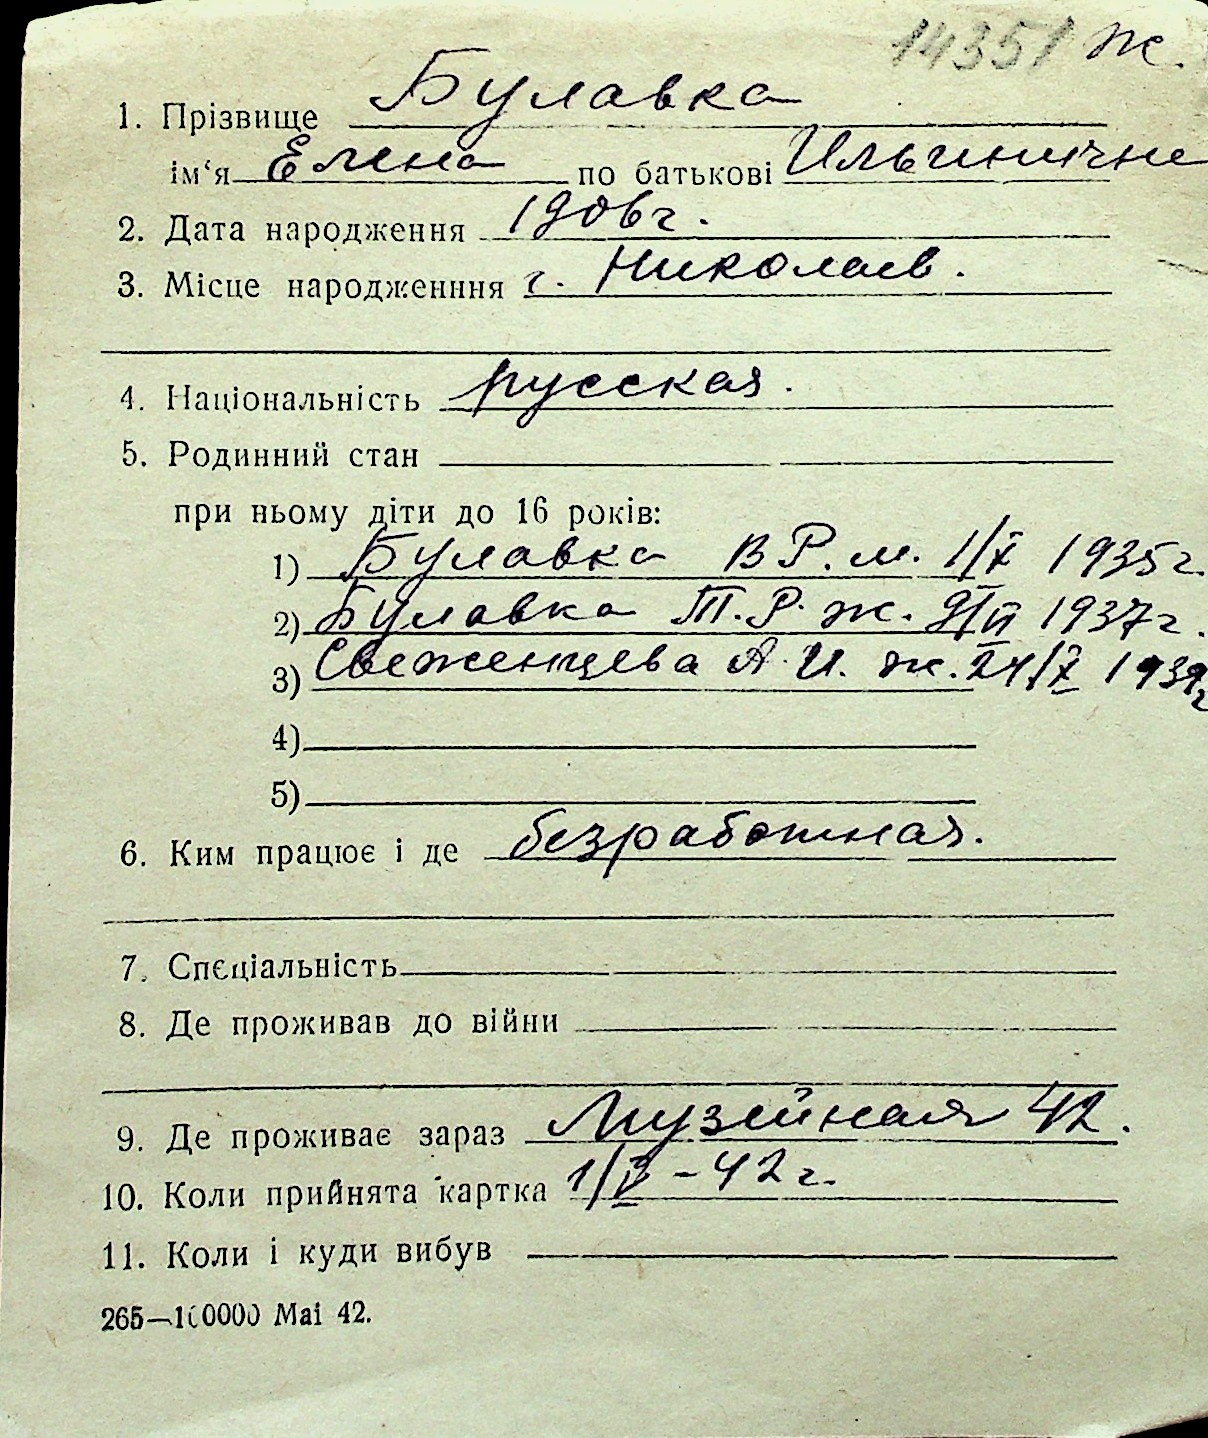 14351 ж.
1. Прізвище Булавка
ім‘я Елена по батькові Ильинична
2. Дата народження 1906 г.
3. Місце народженння г. Николаев.
4. Національність русская.
5. Родинний стан
при ньому діти до 16 років:
1) Булавка В Р. м. 1/X 1935 г.
2) Булавка Т. Р. ж. 1937 г.
3) Свеженцева А. И. ж. 24/X 1939 г
4)
5)
6. Ким працює і де безработная.
7. Спєціальність
8. Де проживав до війни
9. Де проживає зараз Музейная 42.
10. Коли прийнята картка - 42 г.
11. Коли і куди вибув
265—100000 Маі 42.